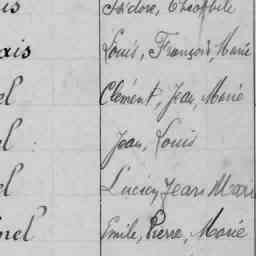 is Isidore, Théophile
xis Louis, François, Marie
el Clément, Jean, Marie
el Jean, Louis
el Lucien, Jean Marie
nel Emile, Pierre, Marie